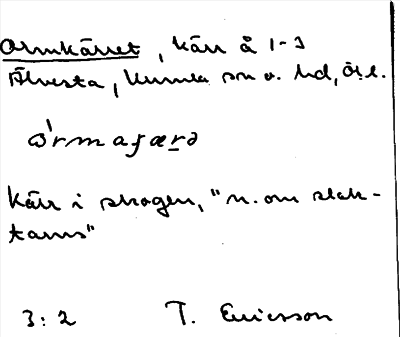 Ormkärret, kärr å 1-3
Älvesta, Kumla sn o. hd, Ö.l.
kärr i skogen, "n. om slak-
tarns"
3:2 T. Ericsson